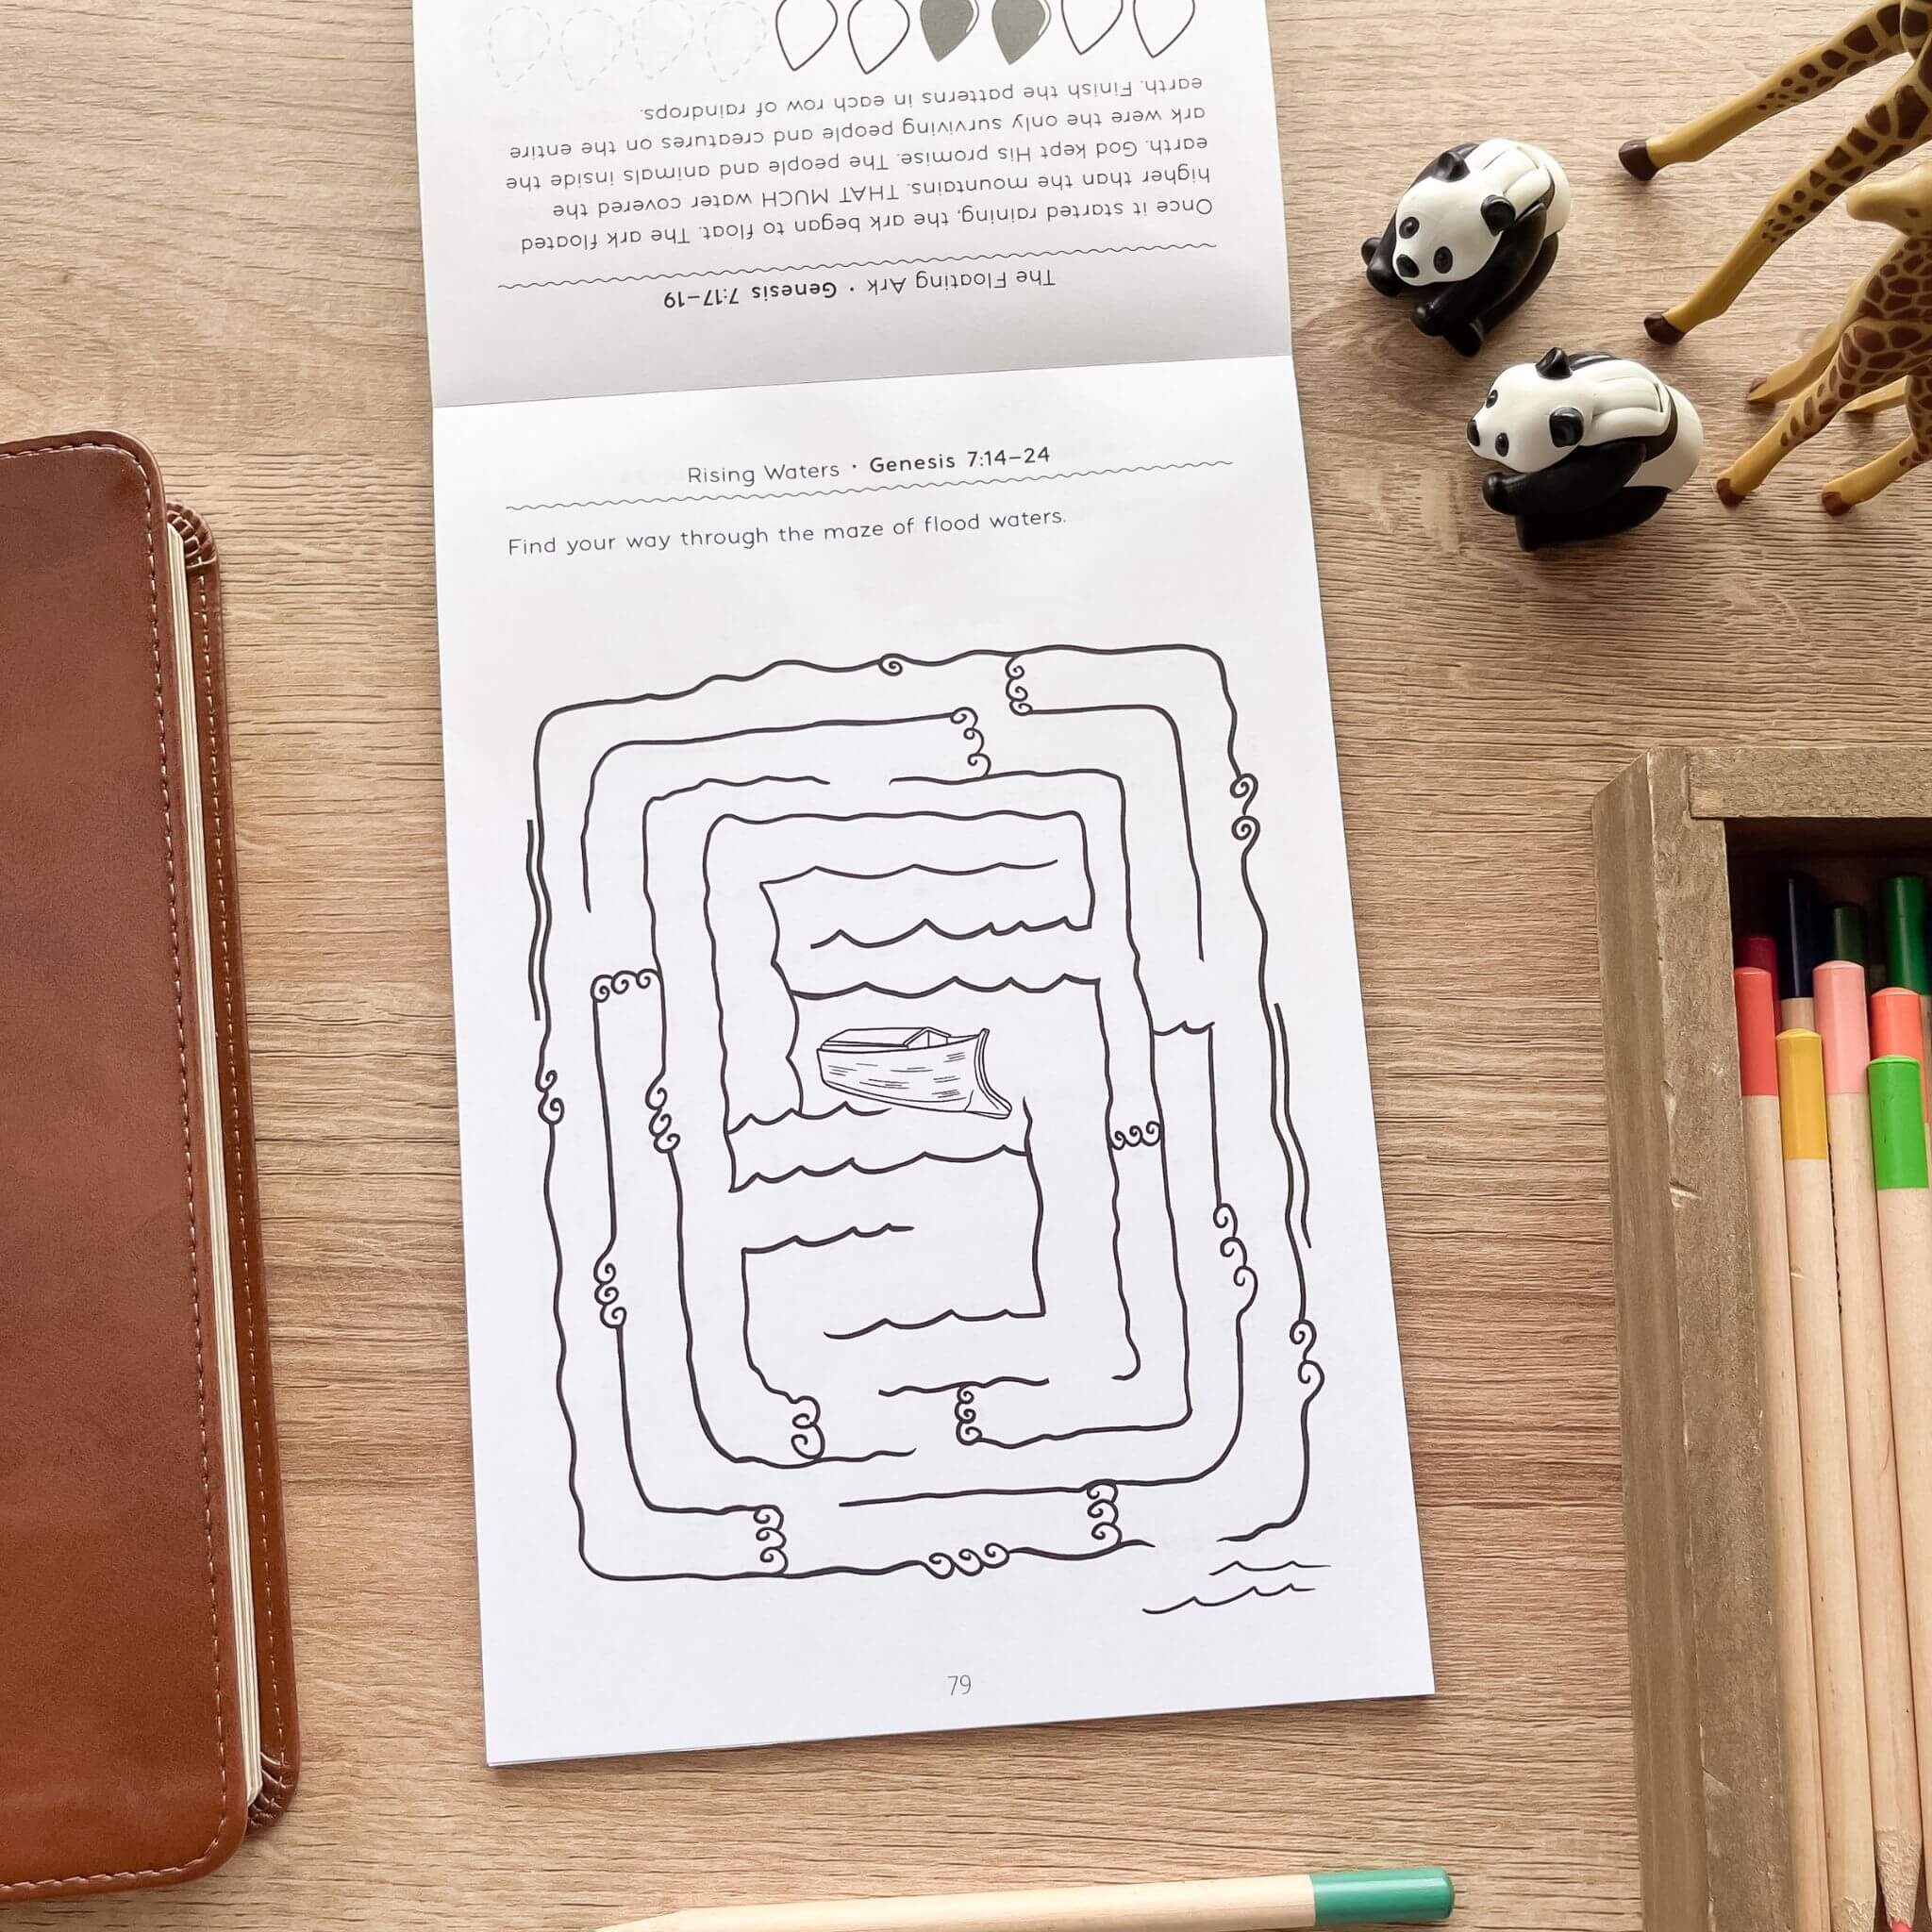 The Floating Ark • Genesis 7:17–19
Once it started raining, the ark began to float. The ark floated
higher than the mountains. THAT MUCH water covered the
earth. God kept His promise. The people and animals inside the
ark were the only surviving people and creatures on the entire
earth. Finish the patterns in each row of raindrops.
Rising Waters • Genesis 7:14–24
Find your way through the maze of flood waters.
79